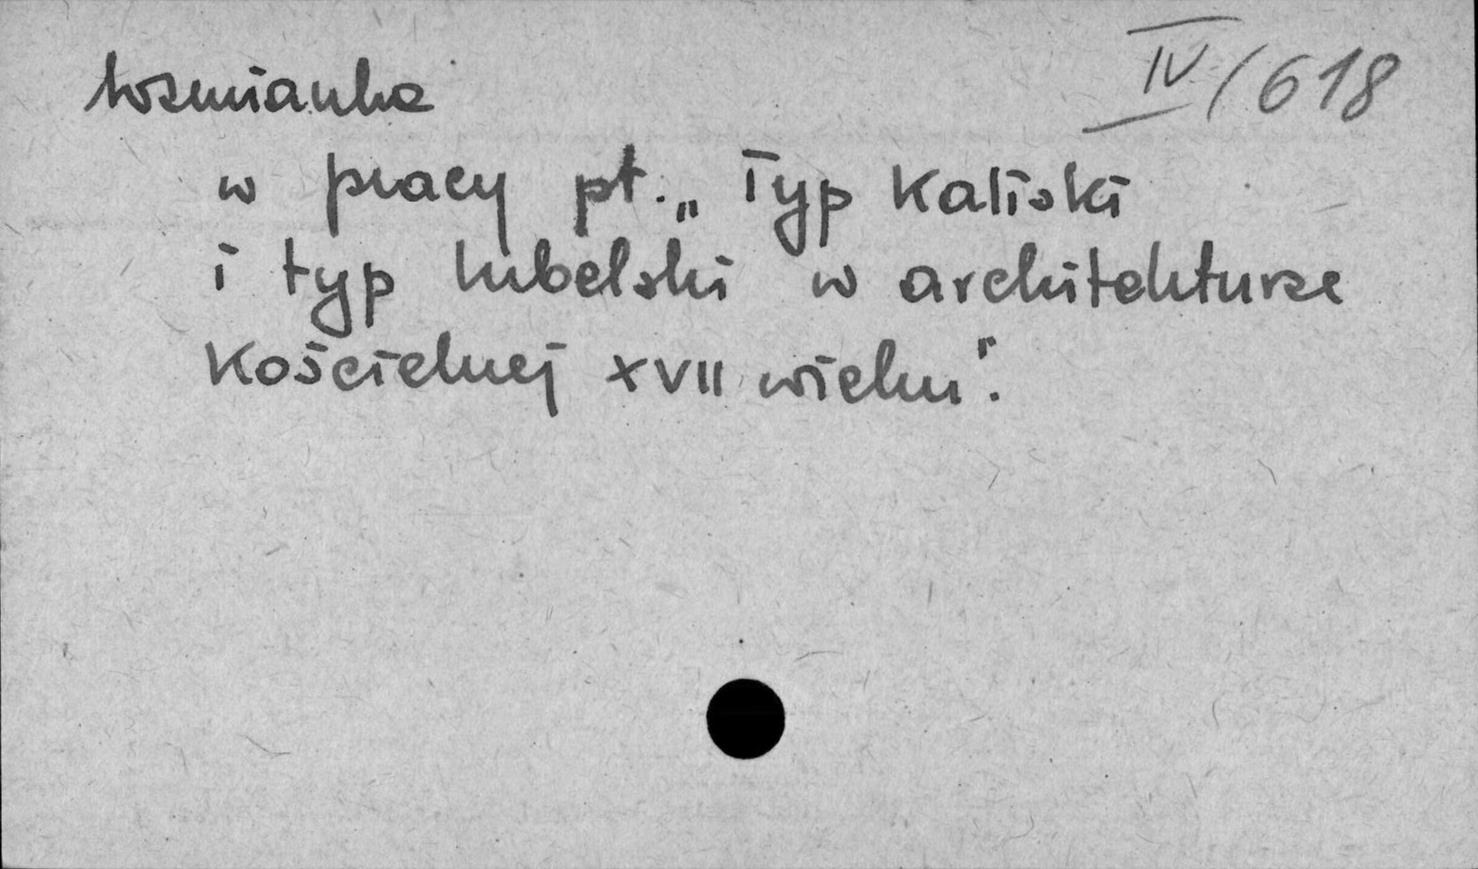 IV/618
Koźmianka
w pracy pt. „Typ Kaliski
i typ lubelski w architekturze
Kościelnej XVII wieku".